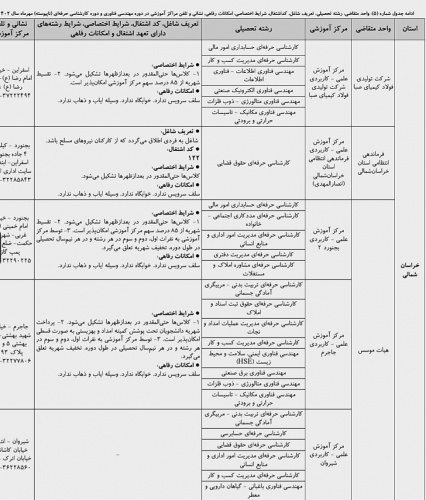 ادامه جدول شماره (۵) واحد متقاضی، رشته تحصیلی، تعریف شاغل، کداشتغال، شرایط اختصاصی، امکانات رفاهی، نشانی و تلفن مراکز آموزشی در دوره مهندسی فناوری و دوره کارشناسی حرفه‌ای (ناپیوسته) مهرماه سال
استان
واحد متقاضی
مرکز آموزش
رشته تحصیلی
تعریف شاغل، کد اشتغال، شرایط اختصاصی، رشته‌های
دارای تعهد اشتغال و امکانات رفاهی
خراسان
شمالی
شرکت تولیدی
فولاد کیمیای صبا
مرکز آموزش
علمی - کاربردی
شرکت تولیدی
فولاد کیمیای صبا
کارشناسی حرفه‌ای حسابداری امور مالی
کارشناسی حرفه‌ای مدیریت کسب و کار
مهندسی فناوری اطلاعات - فناوری
اطلاعات
مهندسی فناوری الکترونیک صنعتی
مهندسی فناوری متالورژی - ذوب فلزات
مهندسی فناوری مکانیک - تاسیسات
حرارتی و برودتی
● شرایط اختصاصی:
۱- کلاس‌ها حتی‌المقدور در بعدازظهرها تشکیل می‌شود. ۲- تقسیط
شهریه از ۸۵ درصد سهم مرکز آموزشی امکان‌پذیر است.
● امکانات رفاهی:
سلف سرویس ندارد. خوابگاه ندارد. وسیله ایاب و ذهاب ندارد.
فرماندهی
انتظامی استان
خراسان‌شمالی
مرکز آموزش
علمی - کاربردی
فرماندهی انتظامی
استان
خراسان‌شمالی
(انصارالمهدی)
کارشناسی حرفه‌ای حقوق قضایی
● تعریف شاغل:
شاغل به فردی اطلاق می‌گردد که از کارکنان نیروهای مسلح باشد.
● کد اشتغال:
۱۲۲
● شرایط اختصاصی:
کلاس‌ها حتی‌المقدور در بعدازظهرها تشکیل می‌شود.
● امکانات رفاهی:
سلف سرویس ندارد. خوابگاه ندارد. وسیله ایاب و ذهاب ندارد.
هیات موسس
مرکز آموزش
علمی - کاربردی
بجنورد ۲
کارشناسی حرفه‌ای حسابداری امور مالی
کارشناسی حرفه‌ای مددکاری اجتماعی -
خانواده
کارشناسی حرفه‌ای مدیریت امور اداری و
منابع انسانی
کارشناسی حرفه‌ای مدیریت دفتری
کارشناسی حرفه‌ای مشاوره املاک و
مستغلات
● شرایط اختصاصی:
۱- کلاس‌ها حتی‌المقدور در بعدازظهرها تشکیل می‌شود. ۲- تقسیط
شهریه از ۸۵ درصد سهم مرکز آموزشی امکان‌پذیر است. ۳- توسط مرکز
آموزشی به نفرات اول، دوم و سوم در هر رشته و در هر نیم‌سال تحصیلی
در طول دوره، تخفیف شهریه تعلق می‌گیرد.
● امکانات رفاهی:
سلف سرویس ندارد. خوابگاه ندارد. وسیله ایاب و ذهاب ندارد.
مرکز آموزش
علمی - کاربردی
جاجرم
کارشناسی حرفه‌ای تربیت بدنی - مربیگری
آمادگی جسمانی
کارشناسی حرفه‌ای حقوق ثبت اسناد و
املاک
کارشناسی حرفه‌ای مدیریت عملیات امداد و
نجات
کارشناسی حرفه‌ای مدیریت کسب و کار
مهندسی فناوری ایمنی، سلامت و محیط
زیست (HSE)
مهندسی فناوری برق صنعتی
مهندسی فناوری متالورژی - ذوب فلزات
مهندسی فناوری مکانیک - تاسیسات
حرارتی و برودتی
● شرایط اختصاصی:
۱- کلاس‌ها حتی‌المقدور در بعدازظهرها تشکیل می‌شود. ۲- پرداخت
شهریه دانشجویان تحت پوشش کمیته امداد و بهزیستی به صورت قسطی
امکان‌پذیر است. ۳- توسط مرکز آموزشی به نفرات اول، دوم و سوم در
هر رشته و در هر نیم‌سال تحصیلی در طول دوره، تخفیف شهریه تعلق
می‌گیرد.
● امکانات رفاهی:
سلف سرویس ندارد. خوابگاه ندارد. وسیله ایاب و ذهاب ندارد.
مرکز آموزش
علمی - کاربردی
شیروان
کارشناسی حرفه‌ای تربیت بدنی - مربیگری
آمادگی جسمانی
کارشناسی حرفه‌ای حسابرسی
کارشناسی حرفه‌ای حقوق قضایی
کارشناسی حرفه‌ای مدیریت امور اداری و
منابع انسانی
کارشناسی حرفه‌ای مدیریت کسب و کار
مهندسی فناوری باغبانی - گیاهان دارویی و
معطر